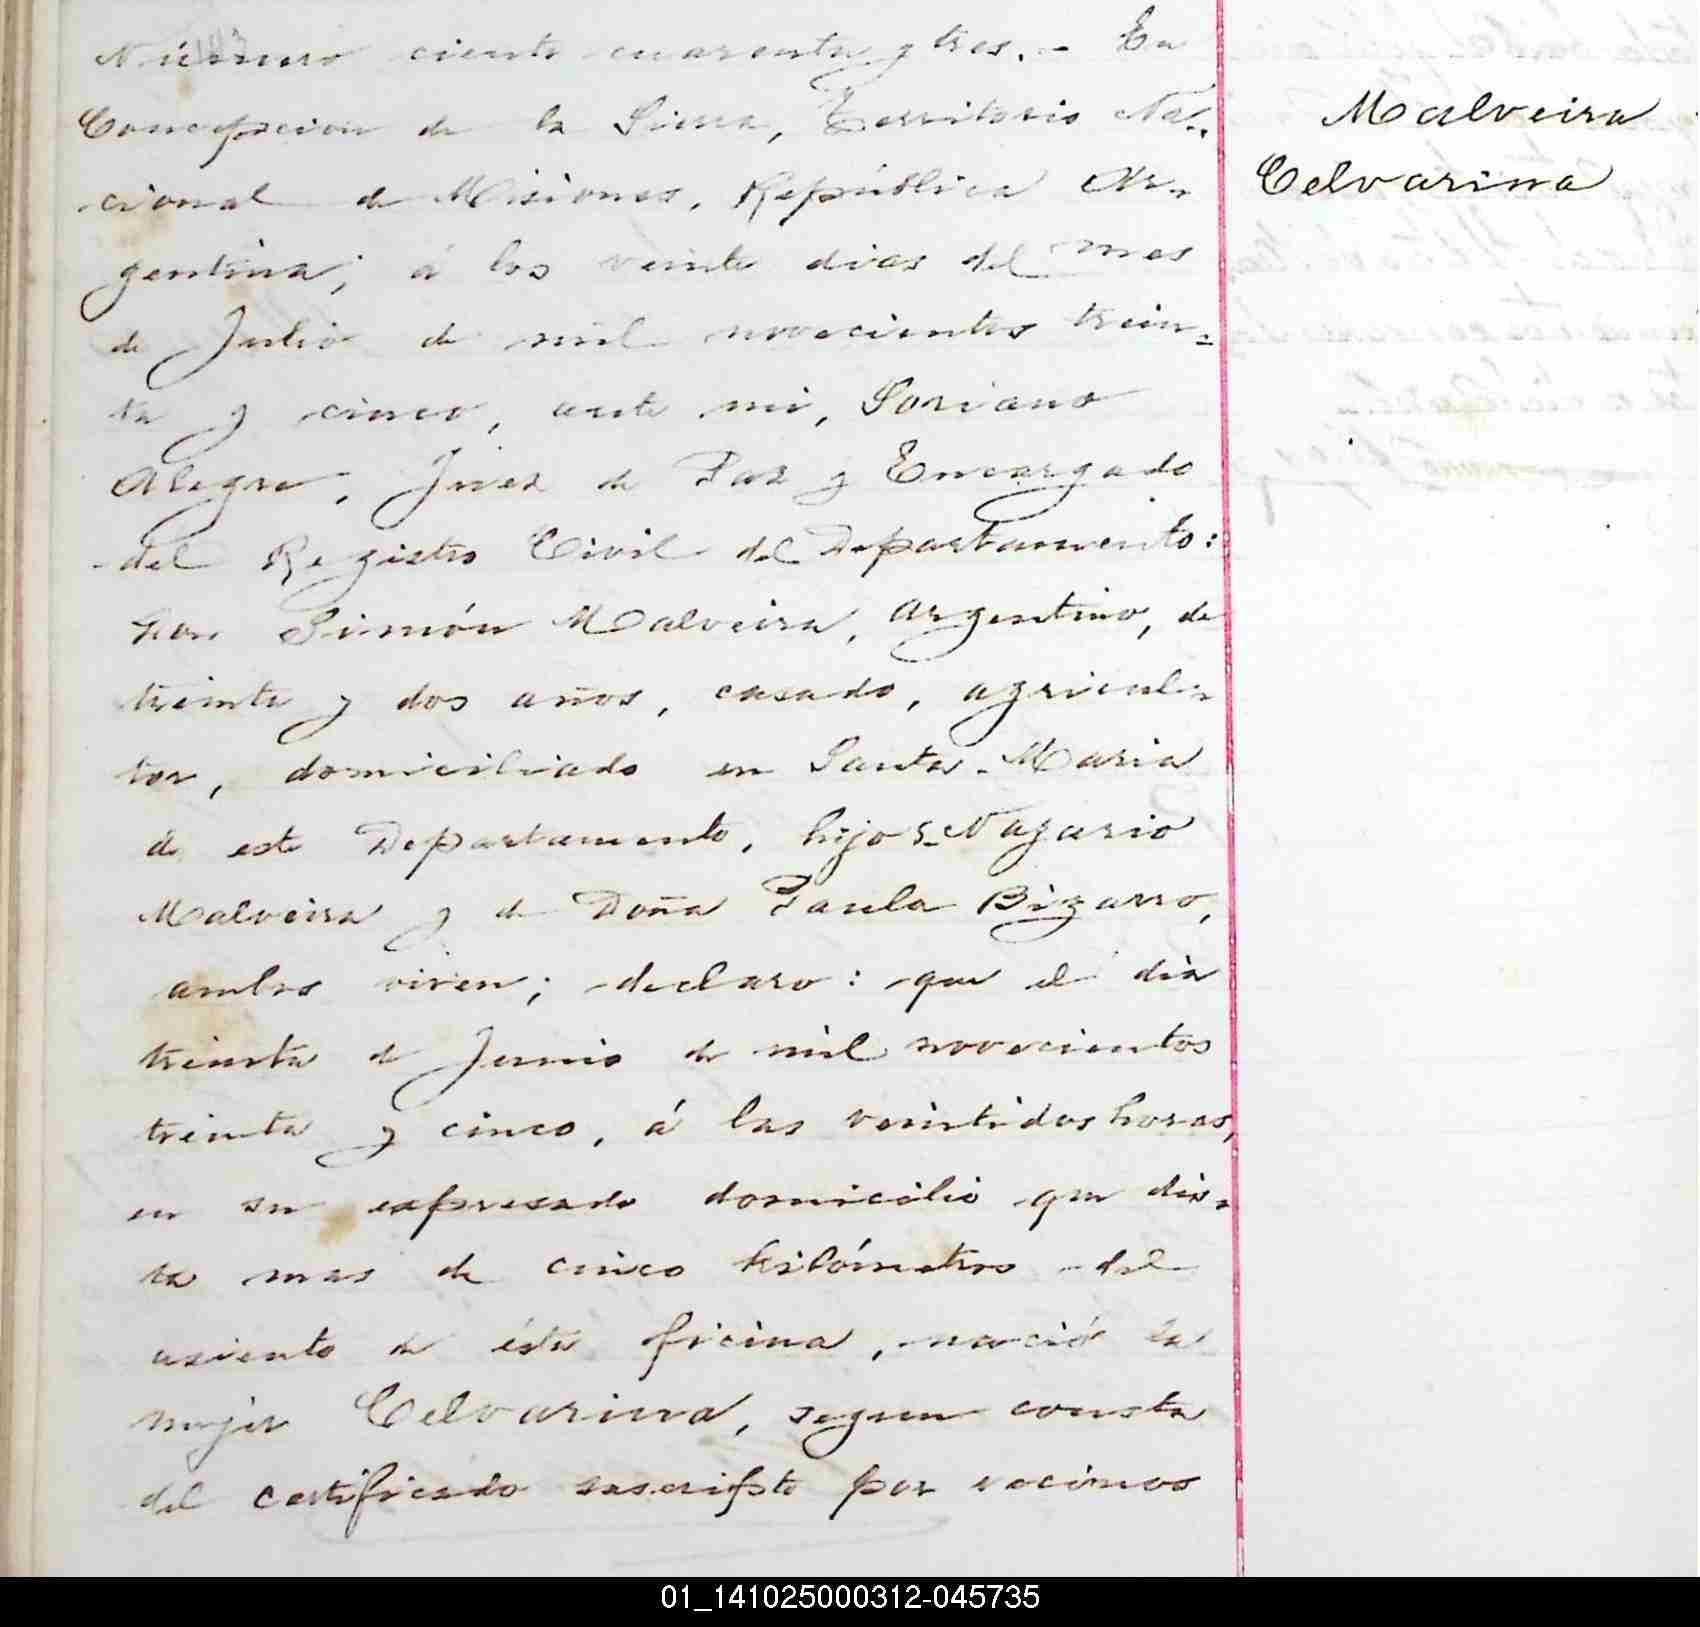 Número ciento cuarenta y tres. - En
Concepcion de la Sierra, Territorio Na-
cional de Misiones, República Ar-
gentina; á los veinte dias del mes
de Julio de mil novecientos trein-
ta y cinco, ante mi, Soriano
Alegre, Juez de Paz y Encargado
del Registro Civil del Departamento:
Don Simón Malveira, argentino, de
treinta y dos años, casado, agricul-
tor, domiciliado en Santa Maria
de este Departamento, hijo Nazario
Malveira y de Doña Paula Bizarro,
ambos viven; declaro: que el dia
treinta de Junio de mil novecientos
treinta y cinco, á las veintidos horas,
en su expresado domicilio que dis-
ta mas de cinco kilómetros del
asiento de ésta ficina, nació la
mujer Celvarina, segun consta
del certificado suscripto por vecinos
Malveira
Celvarina
01_141025000312-045735